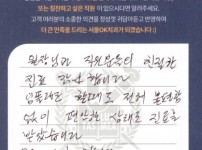 또는 칭찬하고 싶은 직원이 있으시다면 알려주세요.
고객 여러분의 소중한 의견을 정성껏 귀담아듣고 반영하여
더 큰 만족을 드리는 서울OK치과가 되겠습니다 :)
원장님과 직원분들이 친절한
진료 감사합니다
임플란트 할때도 전혀 불편함
없이 편안한 상태로 진료를
받았습니다